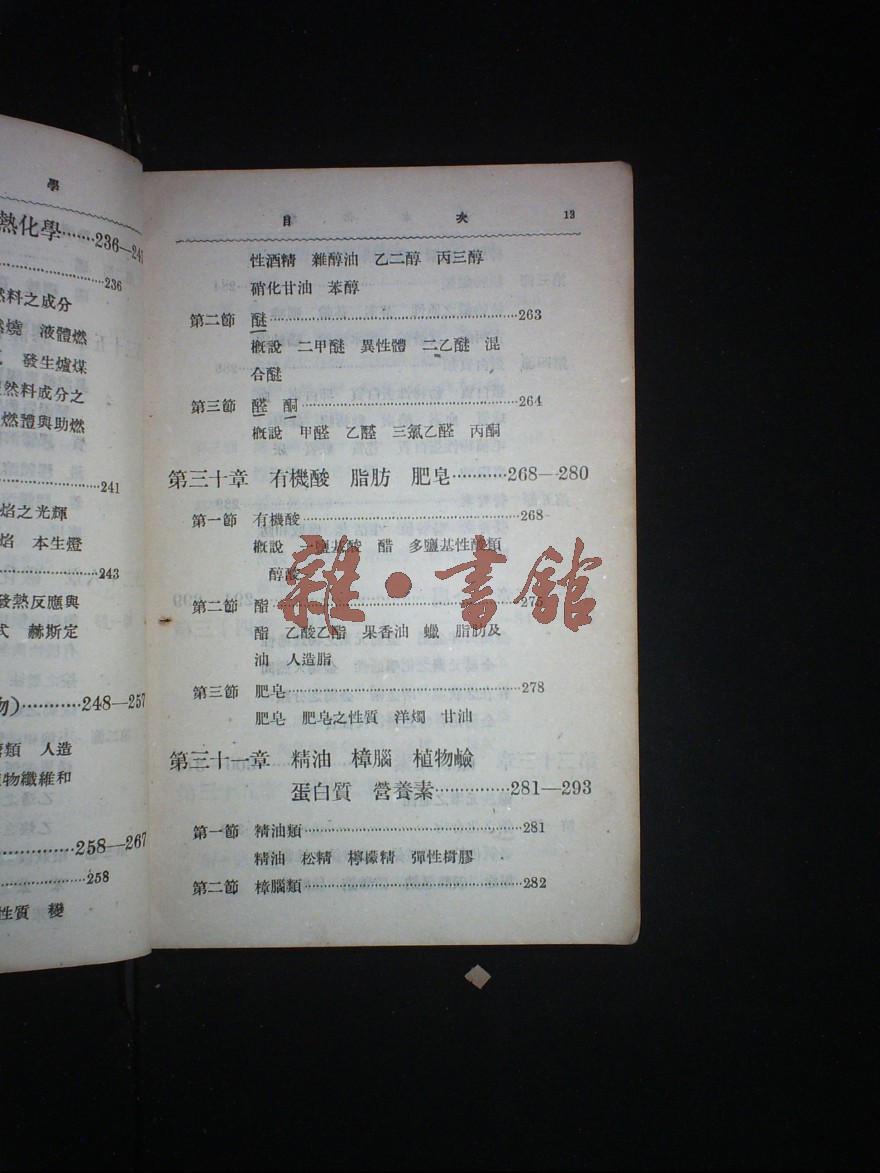 學
熱化學……236—247
236
然料之成分
燒 液體燃
發生爐煤
然料成分之
燃體與助燃
241
焰之光輝
焰 本生燈
243
發熱反應與
式 赫斯定
物)…………248—257
類 人造
物纖維和
258—267
258
性質 變
目 次 13
性酒精 雜醇油 乙二醇 丙三醇
硝化甘油 苯醇
第二節 醚……263
概說 二甲醚 異性體 二乙醚 混
合醚
第三節 醛 酮……264
概說 甲醛 乙醛 三氯乙醛 丙酮
第三十章 有機酸 脂肪 肥皂……268—280
第一節 有機酸……268
概說 一鹽基酸 醋 多鹽基性酸類
醇酸
第二節 酯……275
酯 乙酸乙酯 果香油 蠟 脂肪及
油 人造脂
第三節 肥皂……278
肥皂 肥皂之性質 洋燭 甘油
第三十一章 精油 樟腦 植物鹼
蛋白質 營養素……281—293
第一節 精油類……281
精油 松精 檸檬精 彈性樹膠
第二節 樟腦類……282
雜·書館